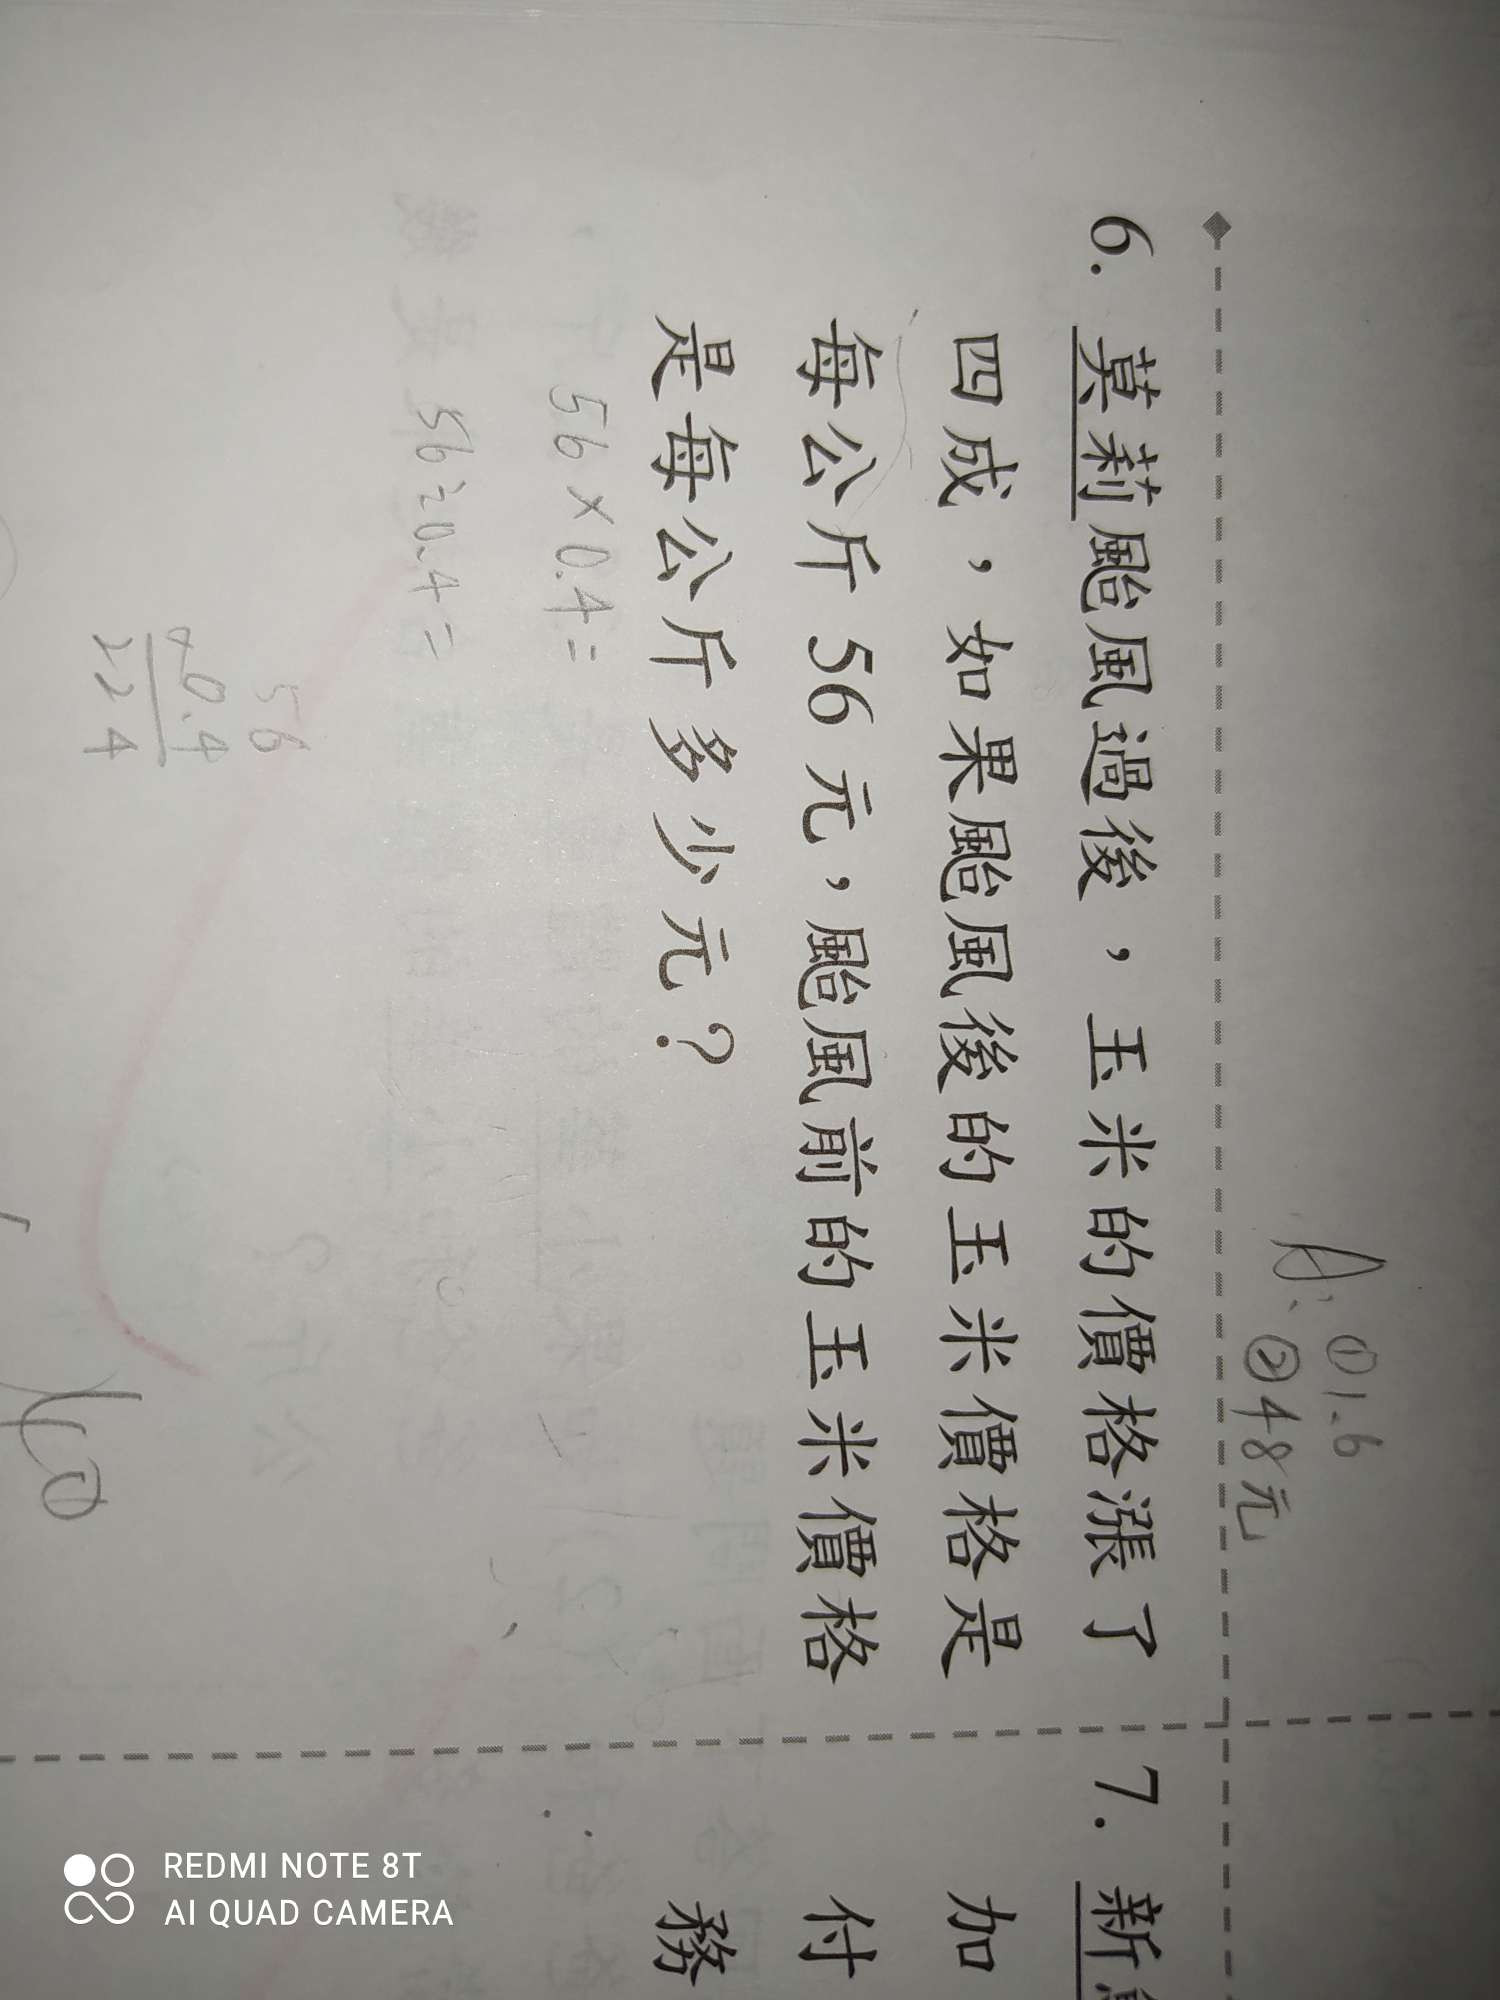 A: ①1.6
②48元
6. 莫莉颱風過後，玉米的價格漲了
四成，如果颱風後的玉米價格是
每公斤56元，颱風前的玉米價格
是每公斤多少元？
56×0.4=
56÷0.4=
56
×0.4
224
7. 新
加
付
務
REDMI NOTE 8T
AI QUAD CAMERA